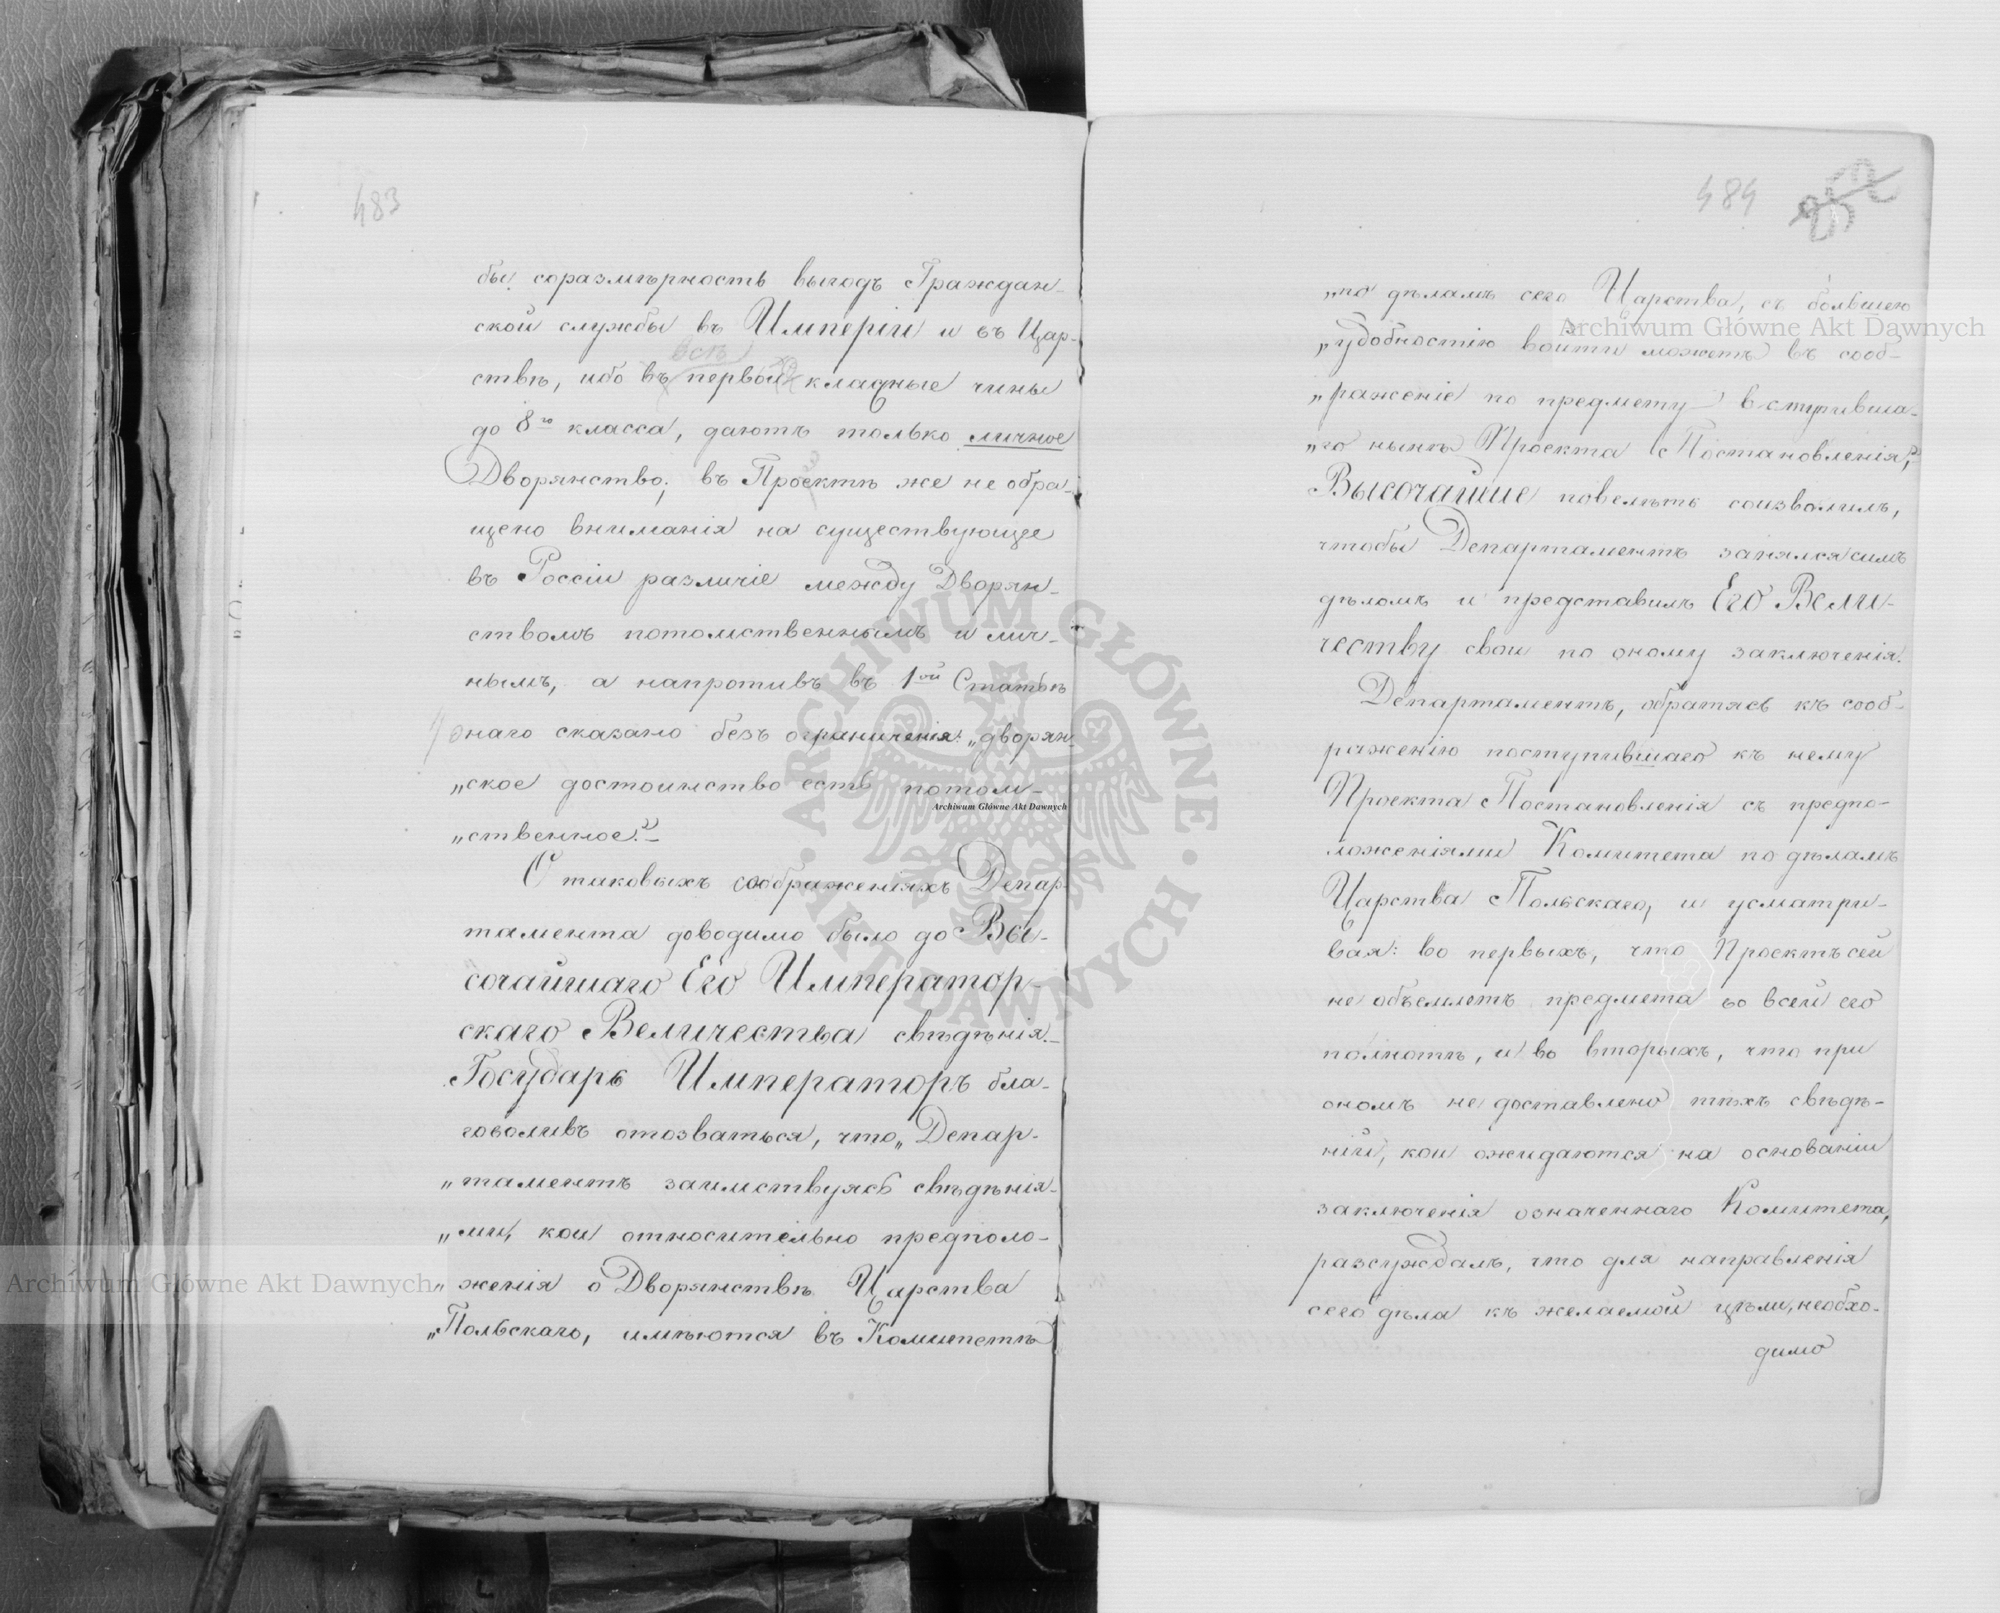 483
бы соразмѣрность выгодъ Граждан-
ской службы въ Имперіи и въ Цар-
ствѣ, ибо въ первой кладные чины
до 8го класса, даютъ только личное
Дворянство; въ Проектѣ же не обра-
щено вниманія на существующее
въ Россіи различіе между Дворян-
ствомъ потомственнымъ и лич-
нымъ, а напротивъ въ 1ой Статьѣ
онаго сказано безъ ограниченія: „дворян-
„ское достоинство есть потом-
„ственное."
О таковыхъ соображеніяхъ Депар-
тамента доводимо было до Вы-
сочайшаго Его Император-
скаго Величества свѣдѣнія.
Государь Императоръ бла-
говоливъ отозваться, что „Депар-
„таментъ заимствуясь свѣдѣнія-
„ми, кои относительно предполо-
„женія о Дворянствѣ Царства
„Польскаго, имѣются въ Комитетѣ
484
„по дѣламъ сего Царства, съ большею
„удобностію войти можетъ въ сооб-
„раженіе по предмету вступивша-
„го нынѣ Проекта Постановленія,"
Высочайше повелѣть соизволилъ,
чтобы Департаментъ занялся симъ
дѣломъ и представилъ Его Вели-
честву свои по оному заключенія.
Департаментъ, обратясь къ сооб-
раженію поступившаго къ нему
Проекта Постановленія съ предпо-
ложеніями Комитета по дѣламъ
Царства Польскаго, и усматри-
вая: во первыхъ, что Проектъ сей
не объемлетъ предмета во всей его
полнотѣ, и во вторыхъ, что при
ономъ не доставлено тѣхъ свѣдѣ-
ній, кои ожидаются на основаніи
заключенія означеннаго Комитета,
разсуждалъ, что для направленія
сего дѣла къ желаемой цѣли, необхо-
димо
Archiwum Główne Akt Dawnych
Archiwum Główne Akt Dawnych
Archiwum Główne Akt Dawnych
ARCHIWUM GŁÓWNE · AKT DAWNYCH ·